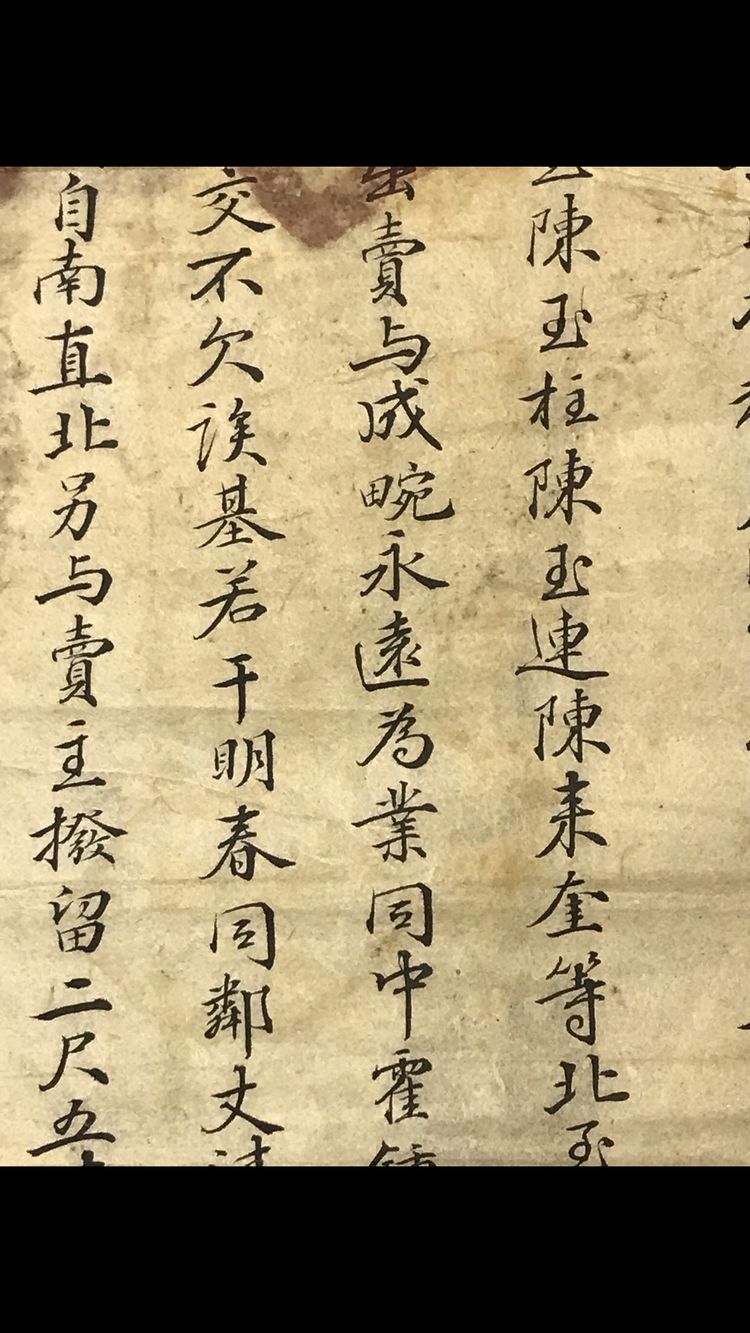 陳玉柱陳玉連陳来奎等北至
賣与成畹永遠為業同中霍
交不欠誒基若干明春同鄰丈
自南直北另与賣主撥留二尺五